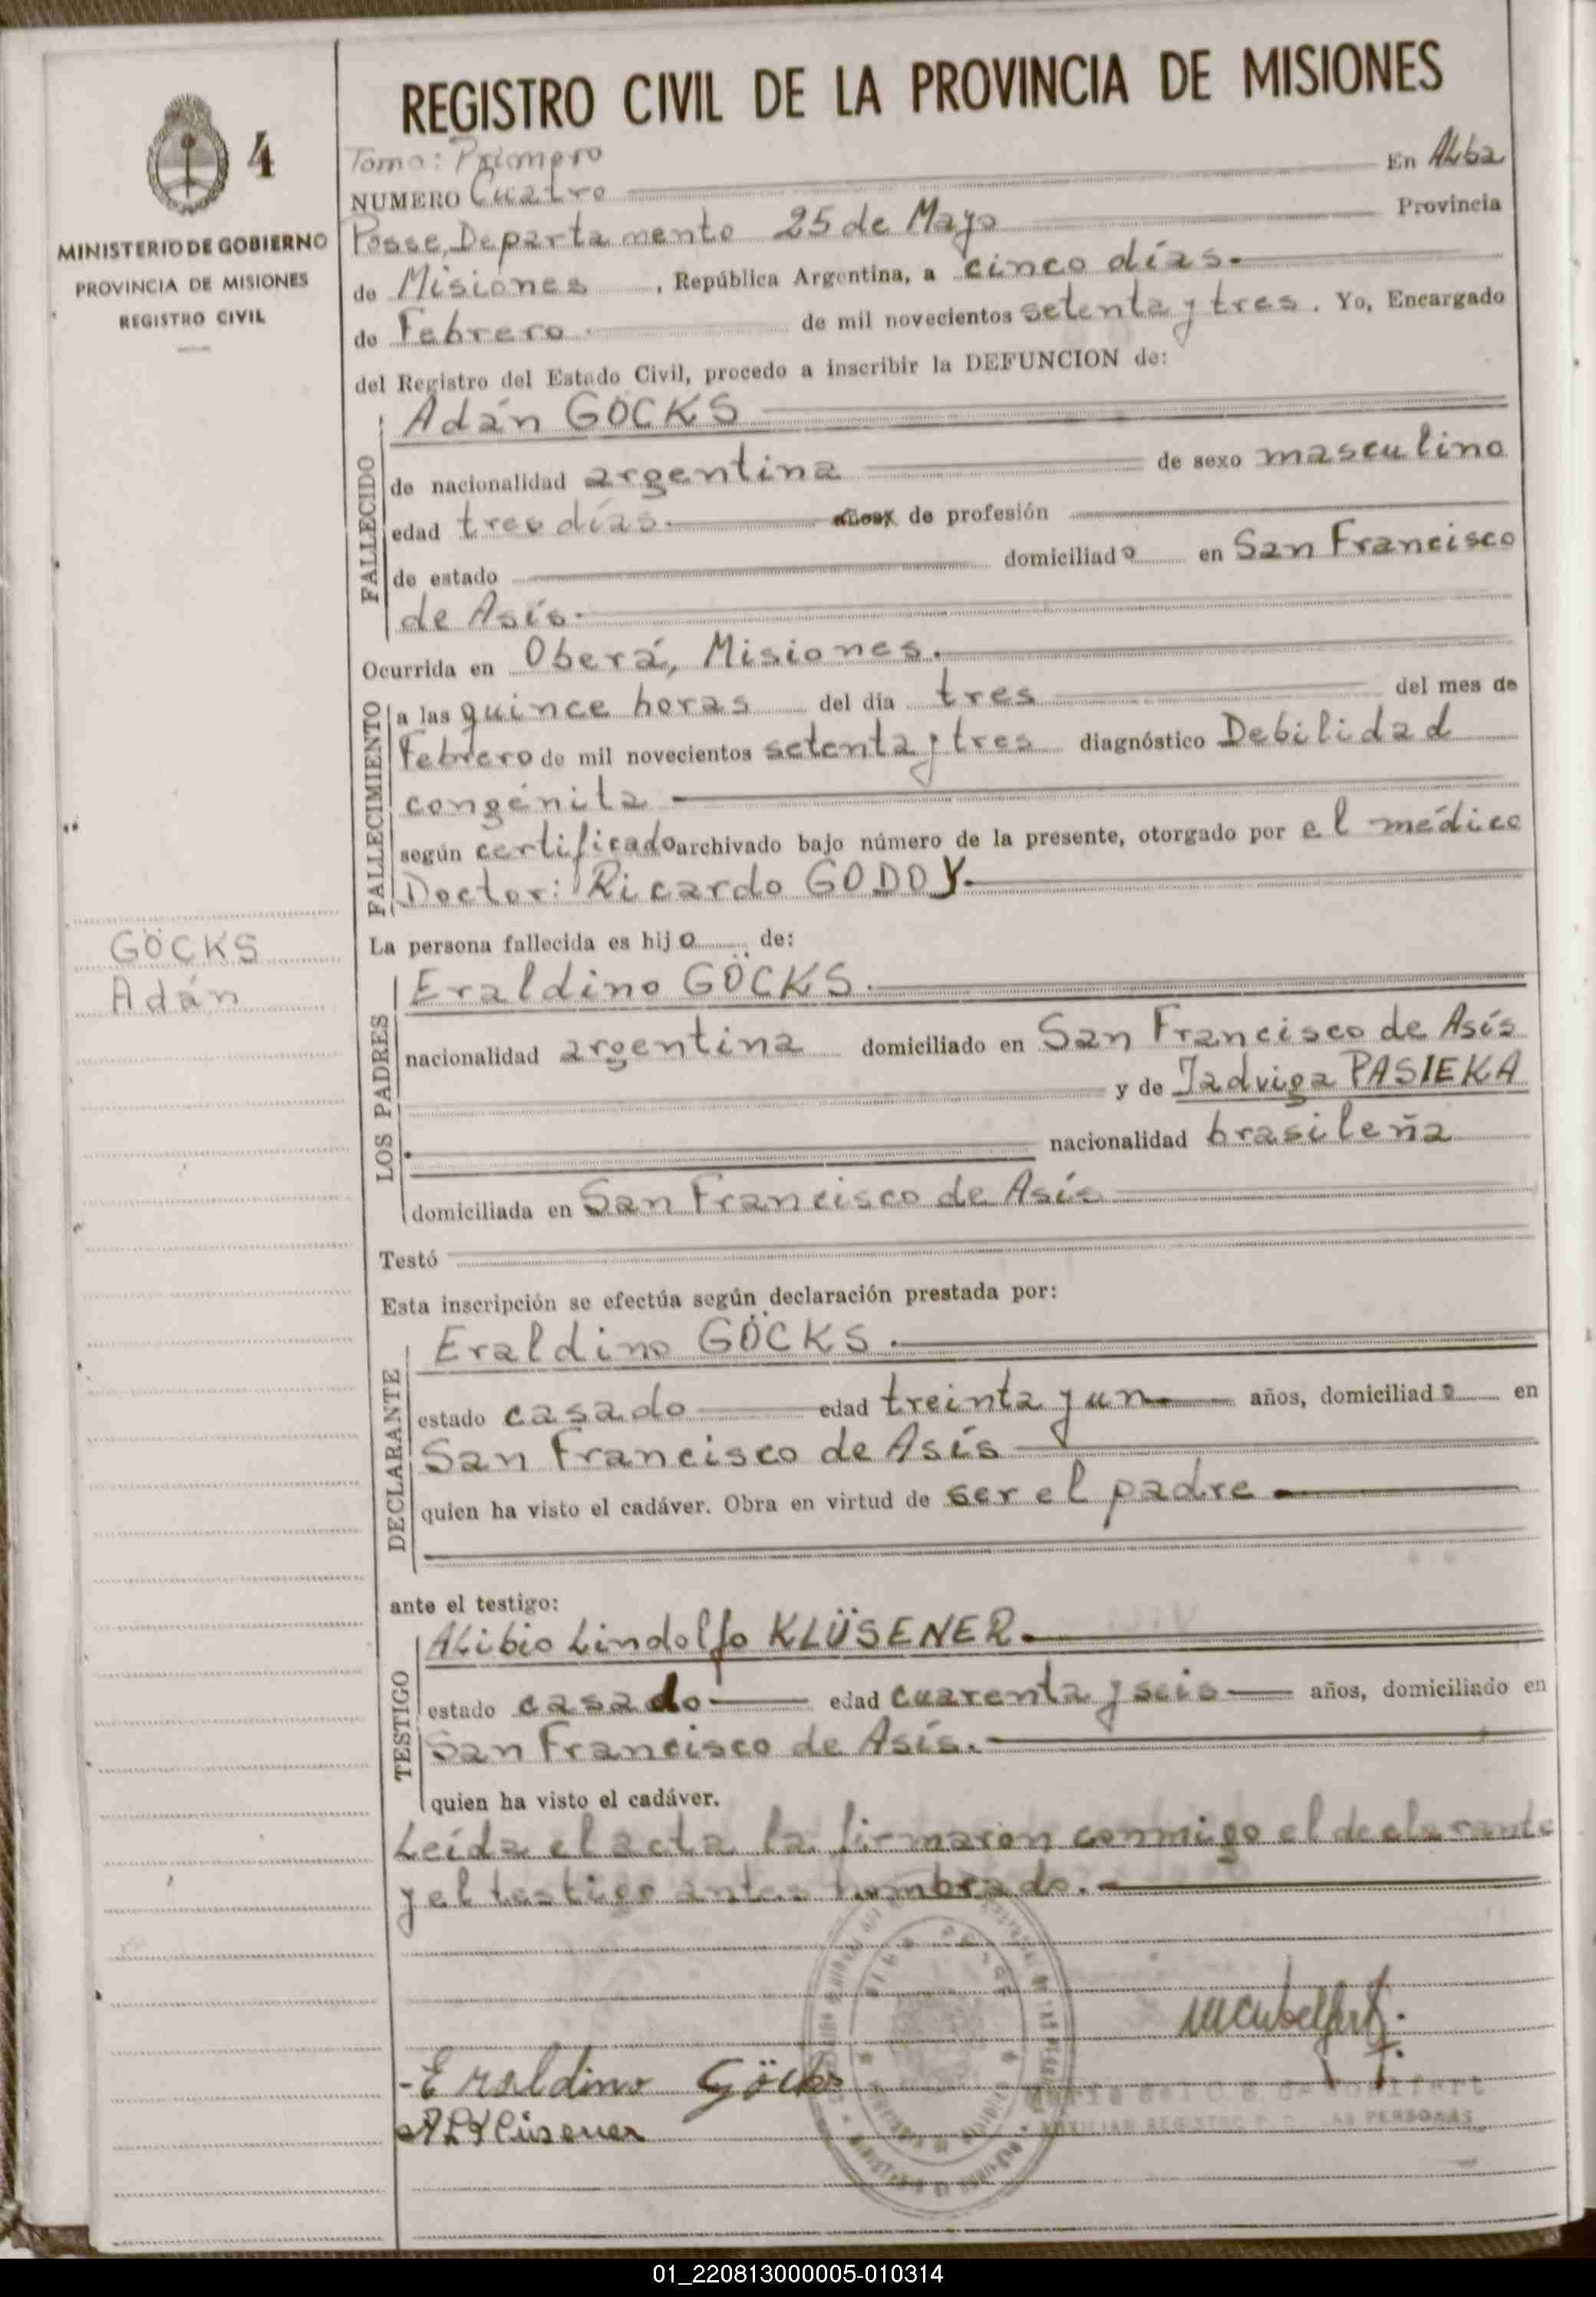 REGISTRO CIVIL DE LA PROVINCIA DE MISIONES
4
MINISTERIO DE GOBIERNO
PROVINCIA DE MISIONES
REGISTRO CIVIL
Tomo: Primero
NUMERO Cuatro En Alba
Posse, Departamento 25 de Mayo Provincia
de Misiones, República Argentina, a cinco días.
de Febrero de mil novecientos setenta y tres. Yo, Encargado
del Registro del Estado Civil, procedo a inscribir la DEFUNCION de:
FALLECIDO
Adán GÖCKS
de nacionalidad argentina de sexo masculino
edad tres días años de profesión
de estado domiciliado en San Francisco
de Asís.
Ocurrida en Oberá, Misiones.
FALLECIMIENTO
a las quince horas del día tres del mes de
Febrero de mil novecientos setenta y tres diagnóstico Debilidad
congénita
según certificado archivado bajo número de la presente, otorgado por el médico
Doctor: Ricardo GODOY.
GÖCKS
Adán
La persona fallecida es hijo de:
LOS PADRES
Eraldino GÖCKS.
nacionalidad argentina domiciliado en San Francisco de Asís
y de Jadviga PASIEKA
nacionalidad brasileña
domiciliada en San Francisco de Asís
Testó
Esta inscripción se efectúa según declaración prestada por:
DECLARANTE
Eraldino GÖCKS.
estado casado edad treinta y un años, domiciliado en
San Francisco de Asís
quien ha visto el cadáver. Obra en virtud de ser el padre
ante el testigo:
TESTIGO
Alibio Lindolfo KLÜSENER.
estado casado edad cuarenta y seis años, domiciliado en
San Francisco de Asís.
quien ha visto el cadáver.
Leída el acta la firmaron conmigo el declarante
y el testigo antes nombrado.
Eraldino Göcks
ALKlüsener
AUXILIAR REGISTRO P. C. LAS PERSONAS
01_220813000005-010314